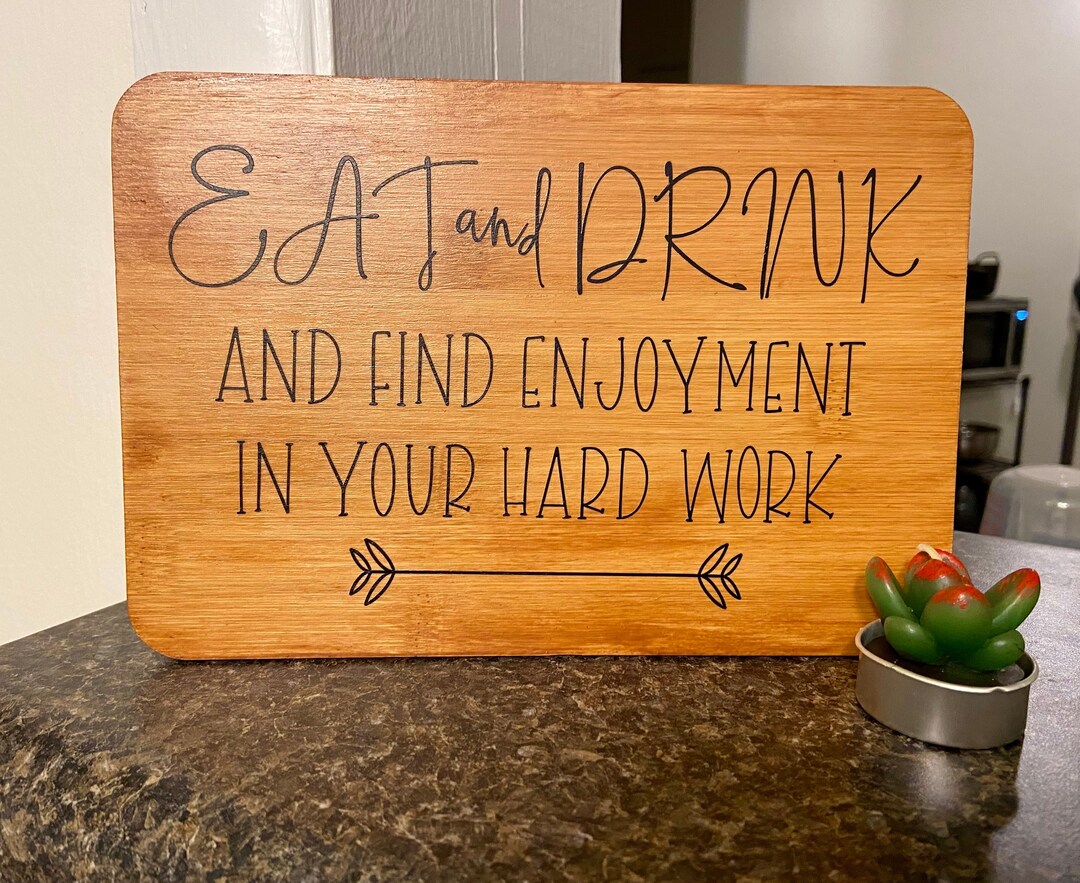 EAT and DRINK
AND FIND ENJOYMENT
IN YOUR HARD WORK